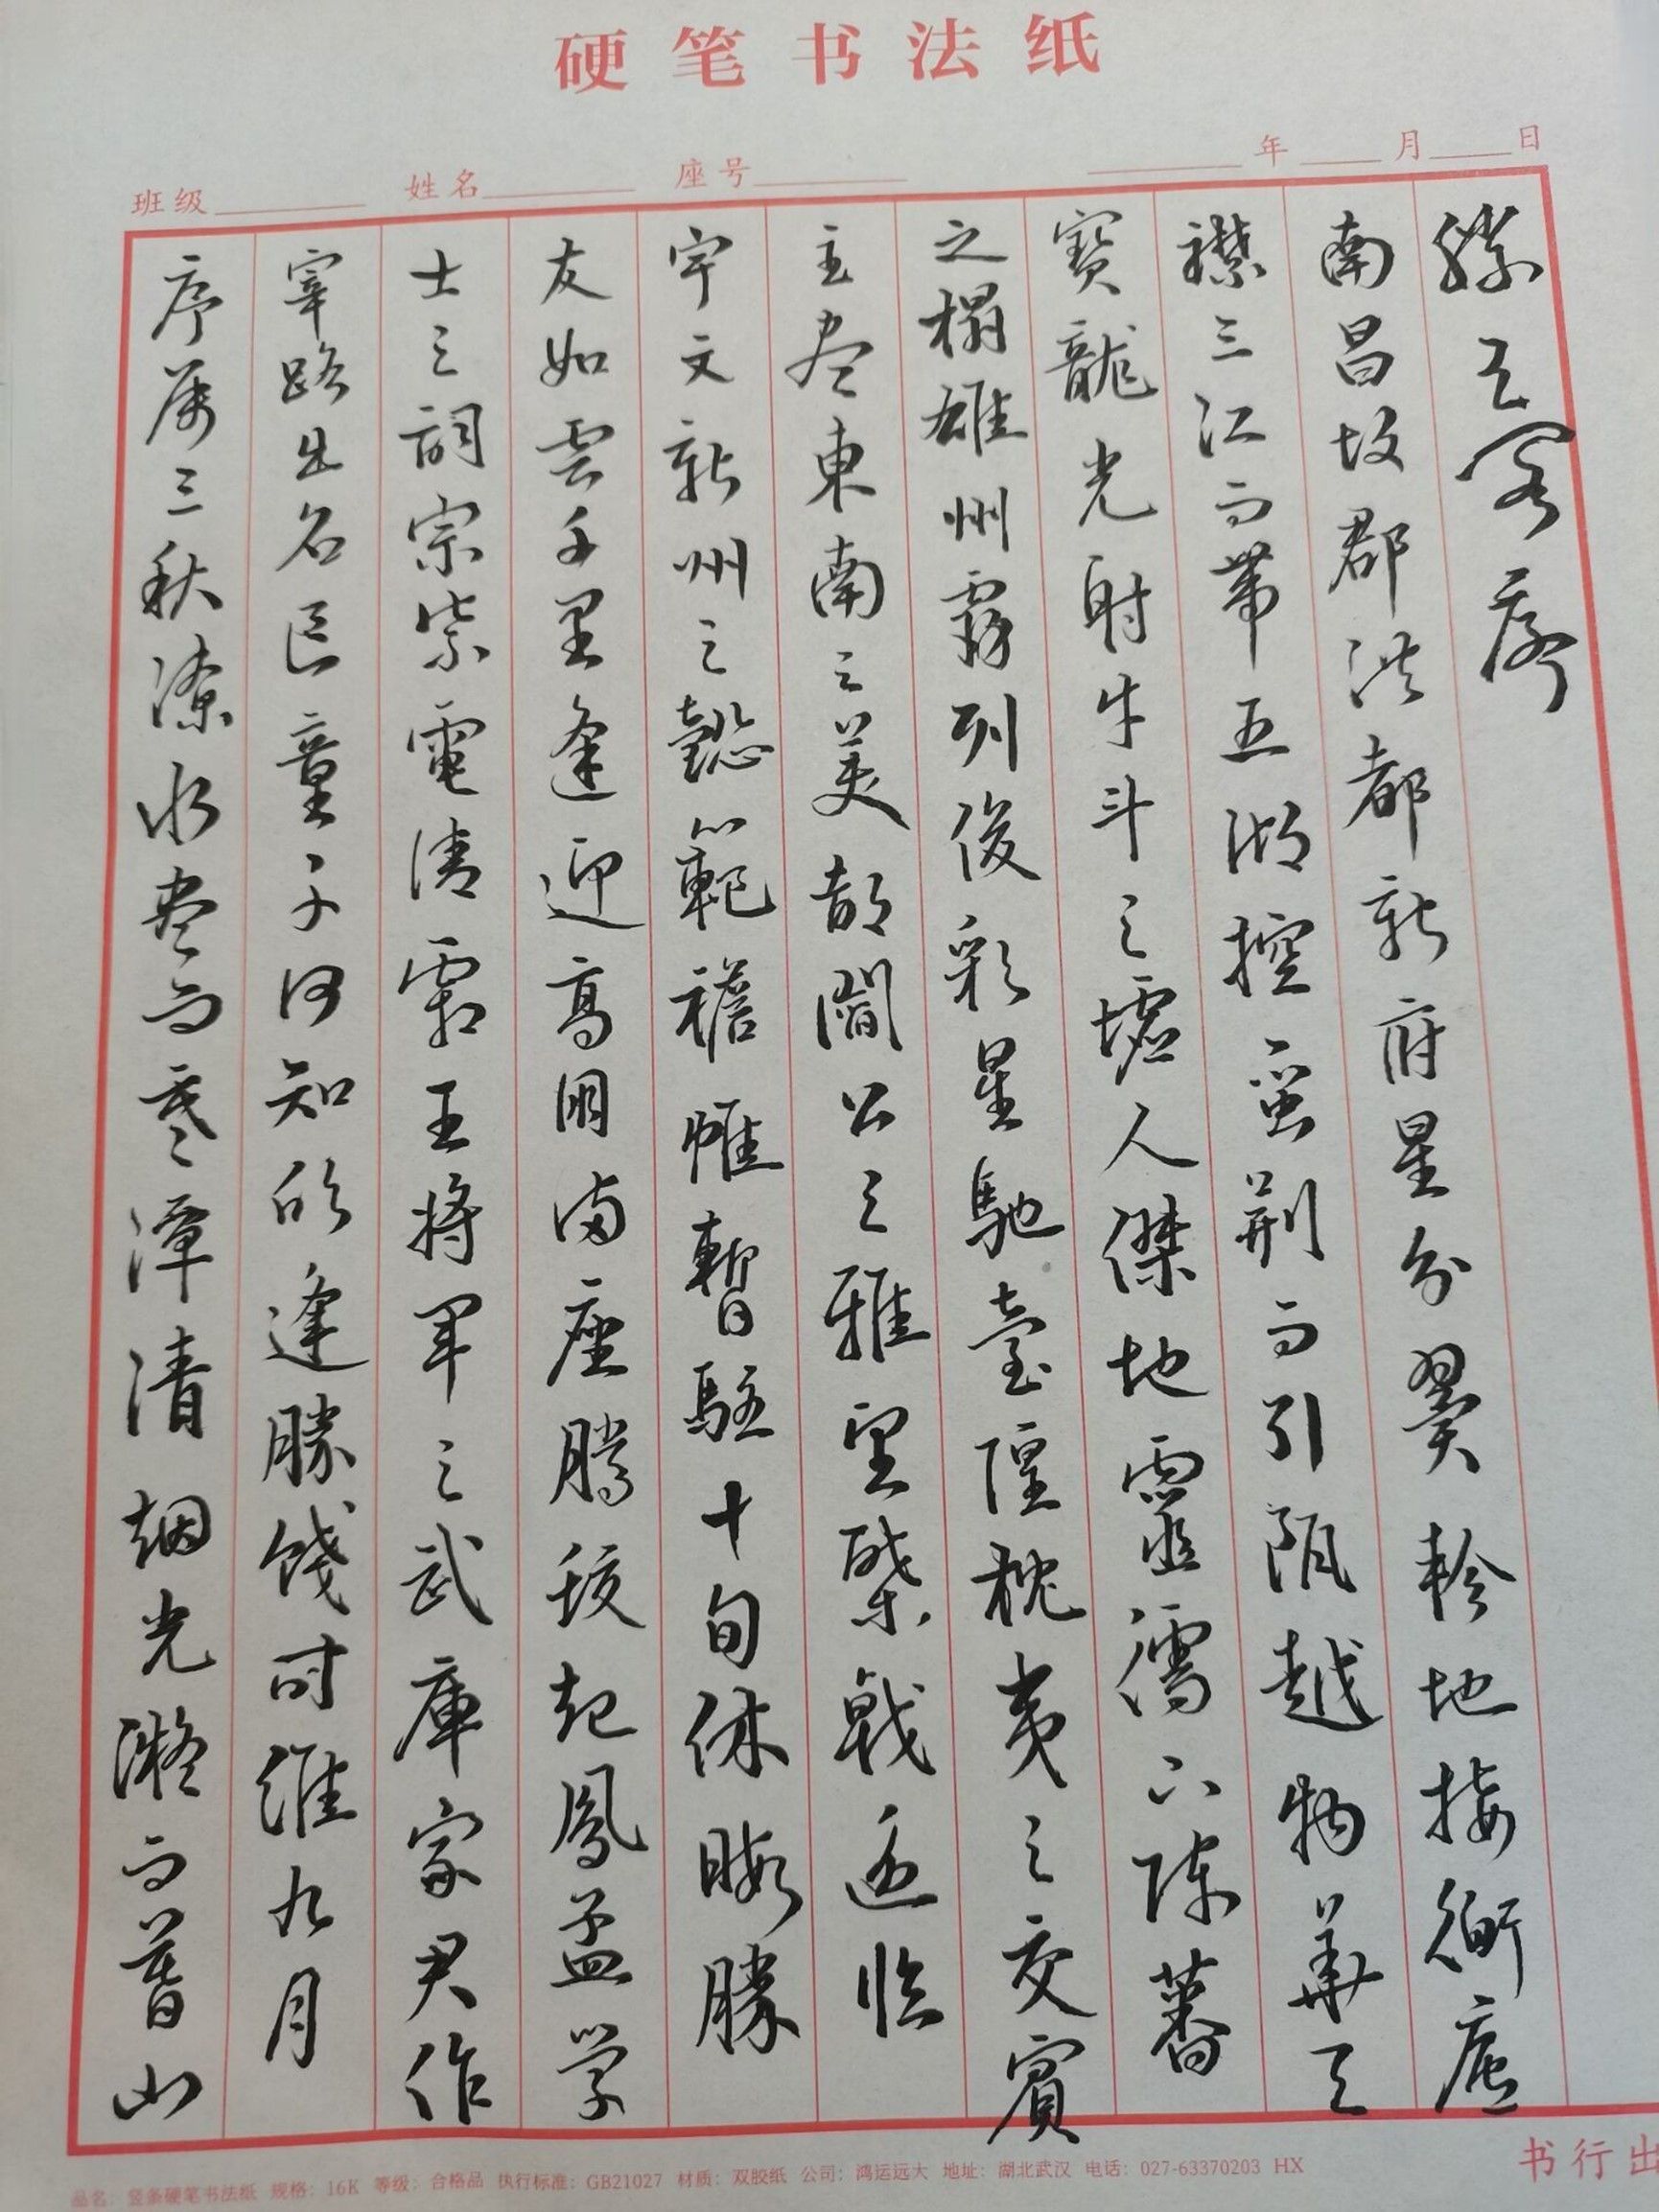 硬笔书法纸
班级 姓名 座号 年 月 日
滕王阁序
南昌故郡洪都新府星分翼軫地接衡庐
襟三江而帶五湖控蛮荆而引瓯越物華天
寶龍光射牛斗之墟人傑地靈孺下陳蕃
之榻雄州霧列俊彩星馳臺隍枕夷之交賓
主尽東南之美都閻公之雅望棨戟遥臨
宇文新州之懿範襜帷暫駐十旬休暇勝
友如雲千里逢迎高朋满座騰蛟起鳳孟学
士之詞宗紫電清霜王將軍之武庫家君作
宰路出名區童子何知躬逢勝餞时維九月
序属三秋潦水尽而寒潭清烟光凝而暮山
书行出
品名：竖条硬笔书法纸 规格：16K 等级：合格品 执行标准：GB21027 材质：双胶纸 公司：鸿运远大 地址：湖北武汉 电话：027-63370203 HX